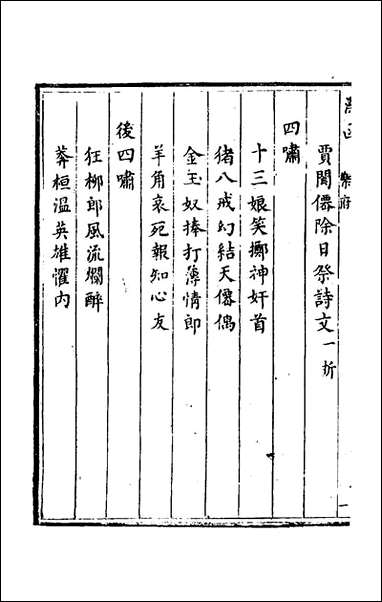 賈閬僊除日祭詩文一折
四嘯
十三娘笑擲神奸首
猪八戒幻結天僊偶
金玉奴捧打薄情郎
羊角哀死報知心友
後四嘯
狂柳郎風流爛醉
莽桓溫英雄懼內